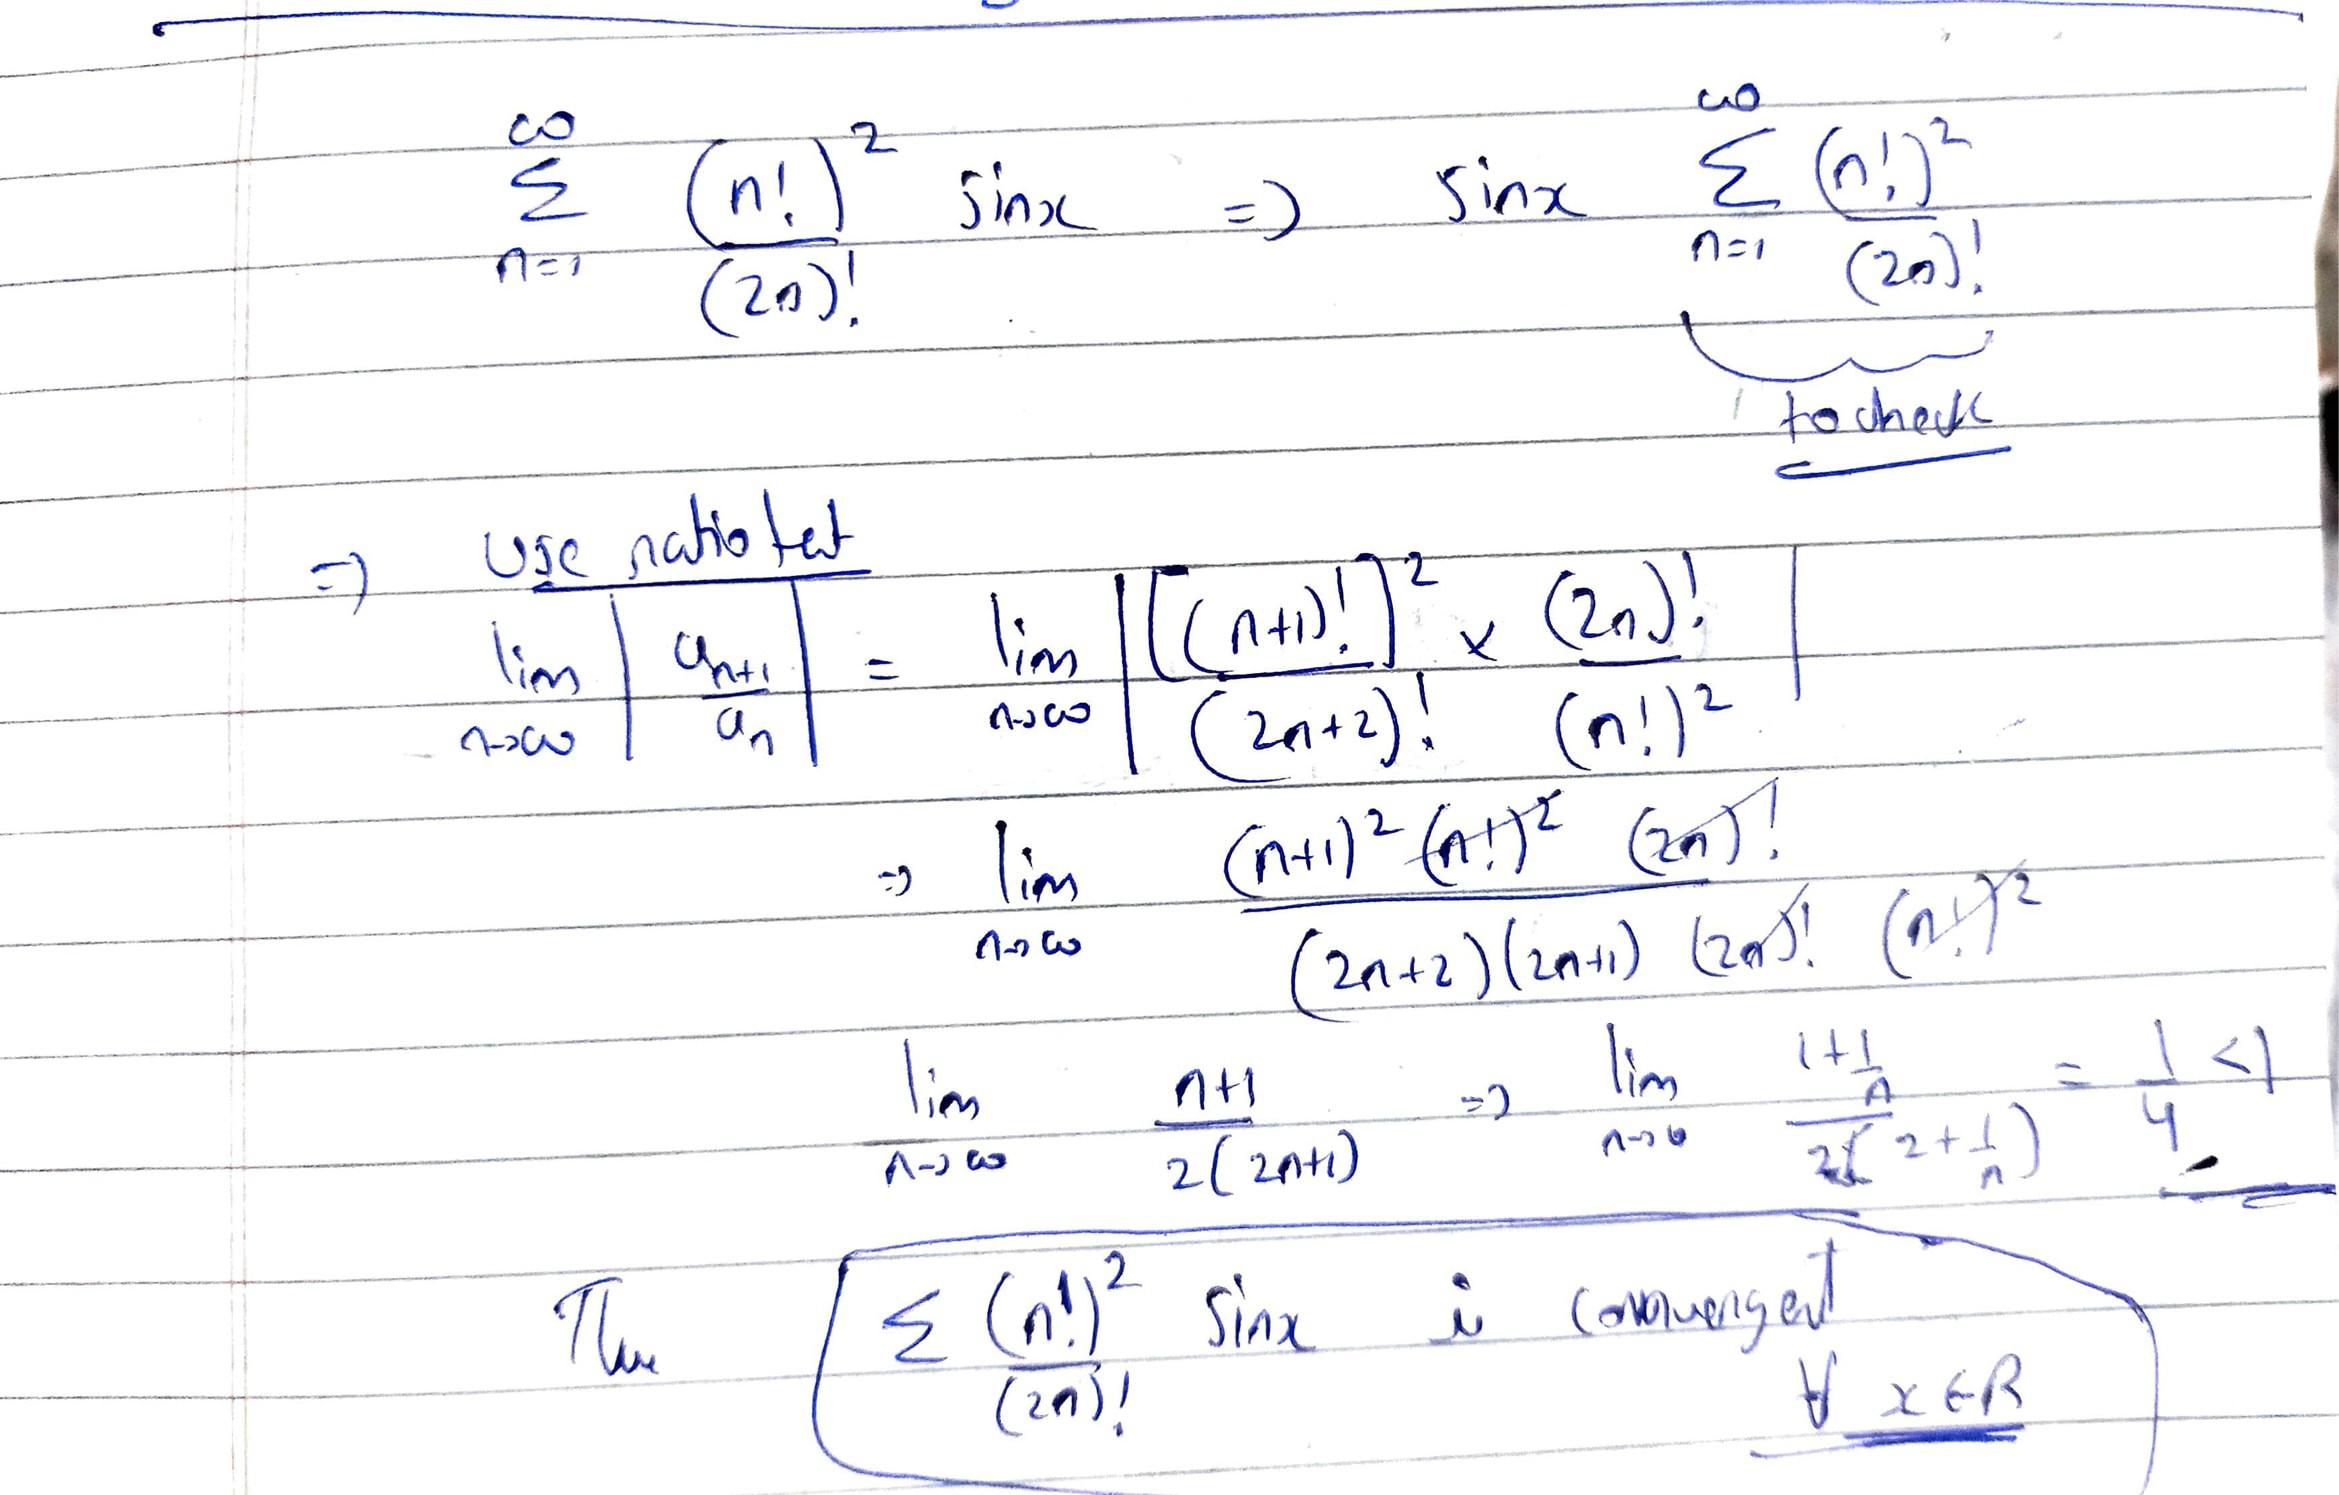 ∞ ∑ n=1 (n!)² / (2n)! sinx => sinx ∞ ∑ n=1 (n!)² / (2n)!
to check
=> Use ratio test
lim n→∞ | a_{n+1} / a_n | = lim n→∞ | [(n+1)!]² / (2n+2)! × (2n)! / (n!)² |
=> lim n→∞ (n+1)² (n!)² (2n)! / (2n+2)(2n+1) (2n)! (n!)²
lim n→∞ n+1 / 2(2n+1) => lim n→∞ 1+1/n / 2(2+1/n) = 1/4 <1
Thus ∑ (n!)² / (2n)! sinx is convergent
∀ x∈R